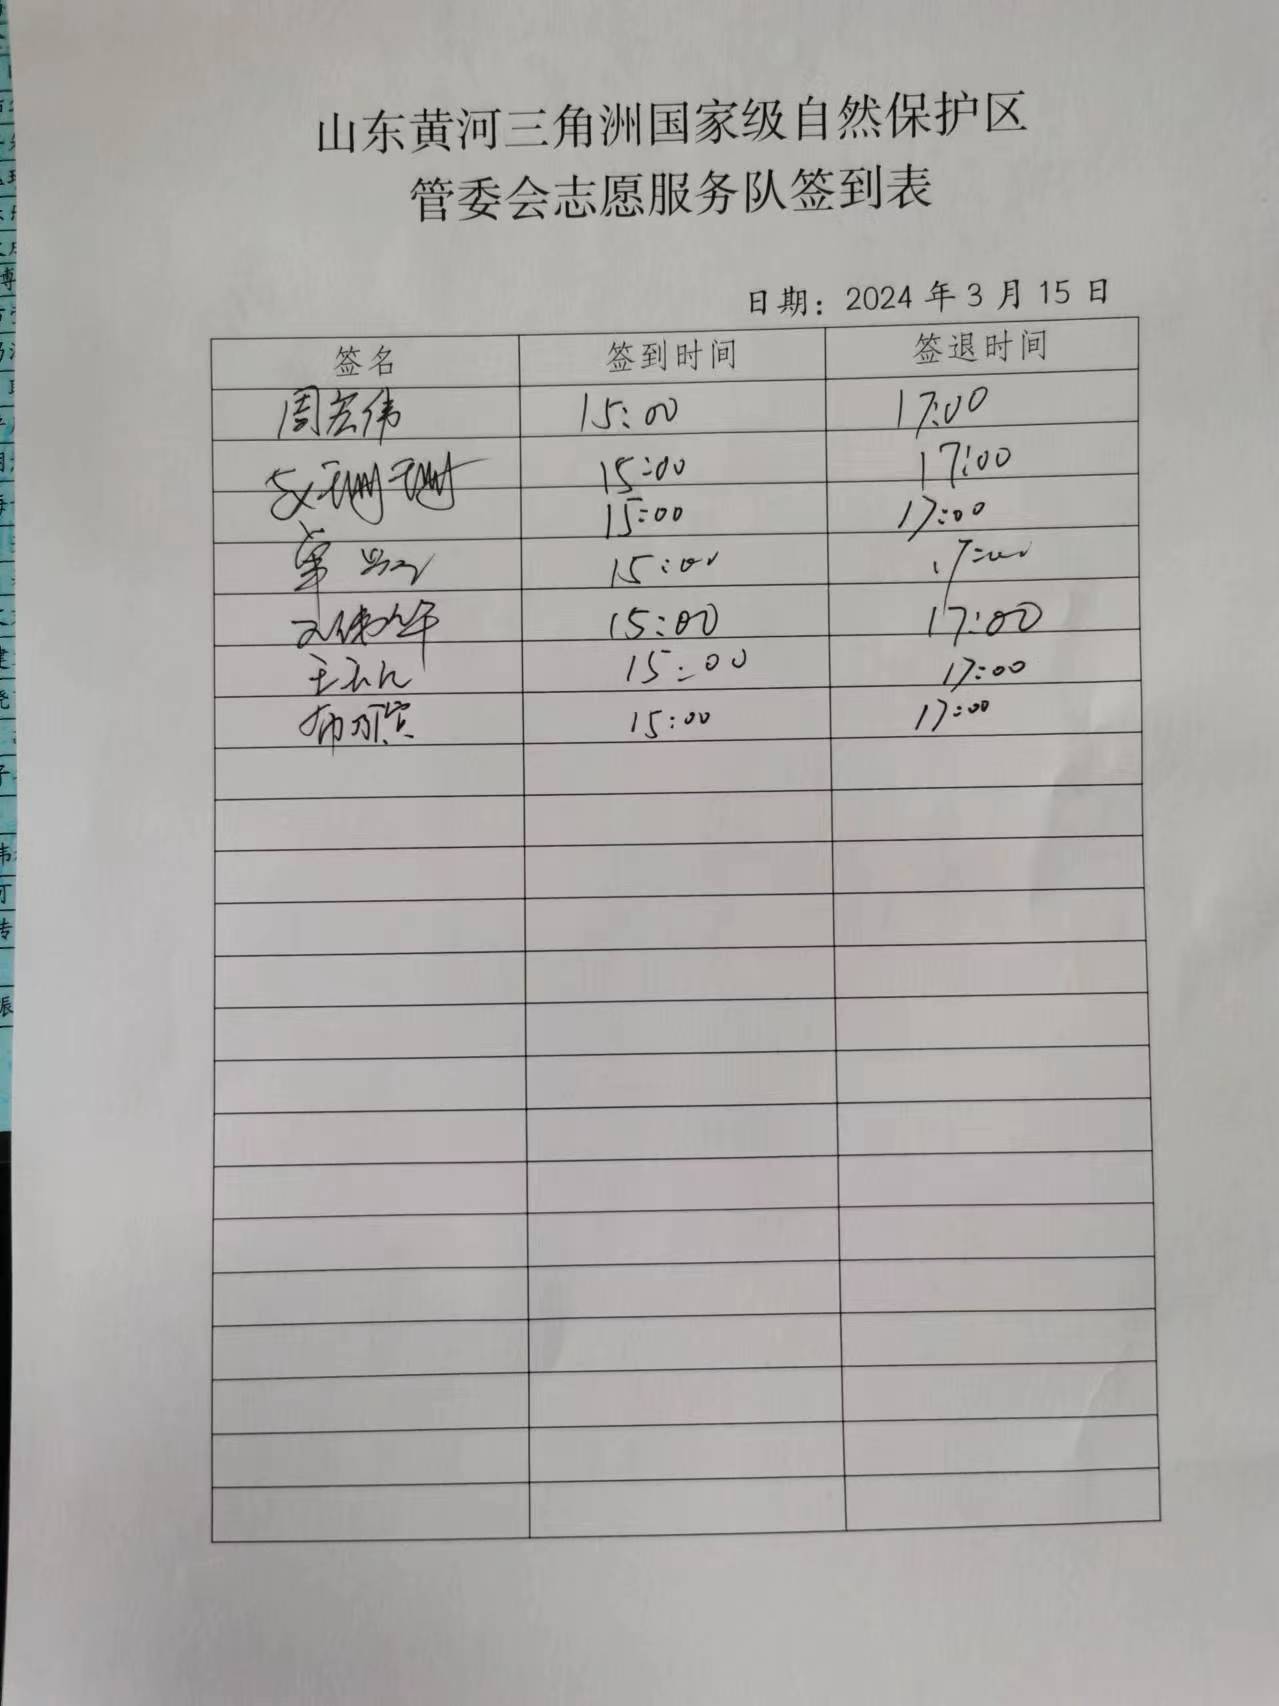 山东黄河三角洲国家级自然保护区
管委会志愿服务队签到表
日期：2024年3月15日
签名 签到时间 签退时间
周宏伟 15:00 17:00
15:00 17:00
15:00 17:00
15:00 17:00
刘伟华 15:00 17:00
15:00 17:00
15:00 17:00